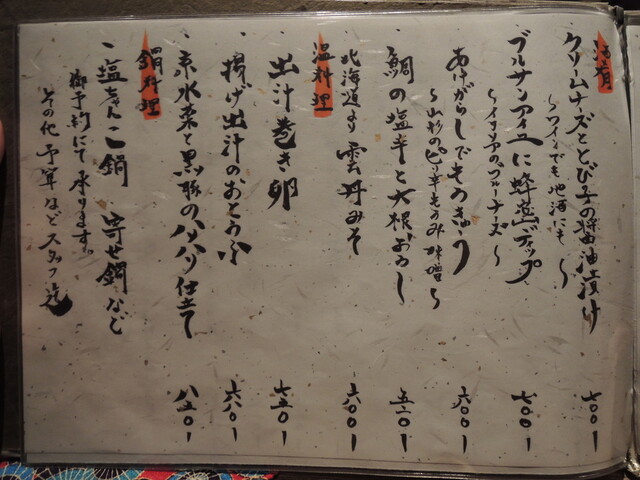 酒肴
クリームチーズととび子の醤油漬け 七〇〇ー
〜ワインでも地酒にも〜
ブルサンアイユに蜂蜜ディップ 七〇〇ー
あけがらしでもろきゅう 六〇〇ー
〜山形のピリ辛もろみ味噌〜
鯛の塩辛と大根おろし 五二〇ー
北海道より雲丹みそ 六〇〇ー
温料理
・出汁巻き卵 七五〇ー
・揚げ出汁のおとうふ 六八〇ー
・京水菜と黒豚のハリハリ仕立て 八五〇ー
鍋料理
・塩ちゃんこ鍋 寄せ鍋など
御予約にて承ります。
その他 予算などスタッフ迄